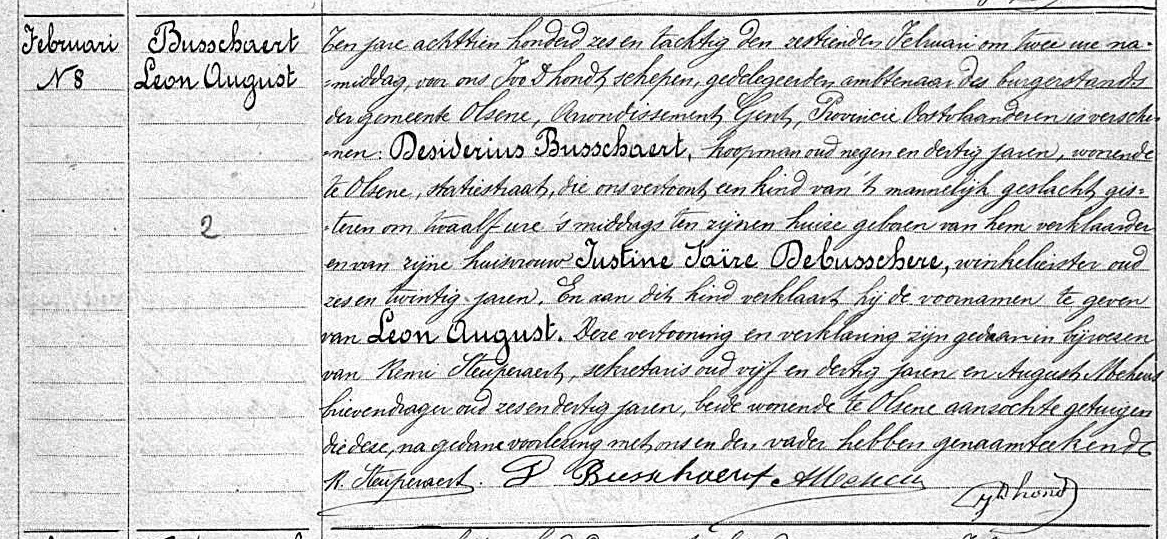 Februari
N 8
Busschaert
Leon August
2
Ten jare achttien honderd zes en tachtig den zestienden Februari om twee ure na=
=middag, voor ons Ivo D'hondt schepen, gedelegeerden ambtenaar des burgerstands
der gemeente Olsene, Arrondissement Gent, Provincie Oostvlaanderen is versche=
=nen: Desiderius Busschaert, koopman oud negen en dertig jaren, wonende
te Olsene, statiestraat, die ons vertoont een kind van 't mannelijk geslacht gis=
=teren om twaalf ure 's middags ten zijnen huize geboren van hem verklaarder
en van zijne huisvrouw Justine Zaïre Debusschere, winkelierster oud
zes en twintig jaren. En aan dit kind verklaart hij de voornamen te geven
van Leon August. Deze vertooning en verklaring zijn gedaan in bijwesen
van Remi Steuperaert, sekretaris oud vijf en dertig jaren en August
brievendrager oud zes en dertig jaren, beide wonende te Olsene aanzochte getuigen
die dese, na gedane voorlezing met ons en den vader hebben genaamteekend
R. Steuperaert. D Busschaert
D'hondt